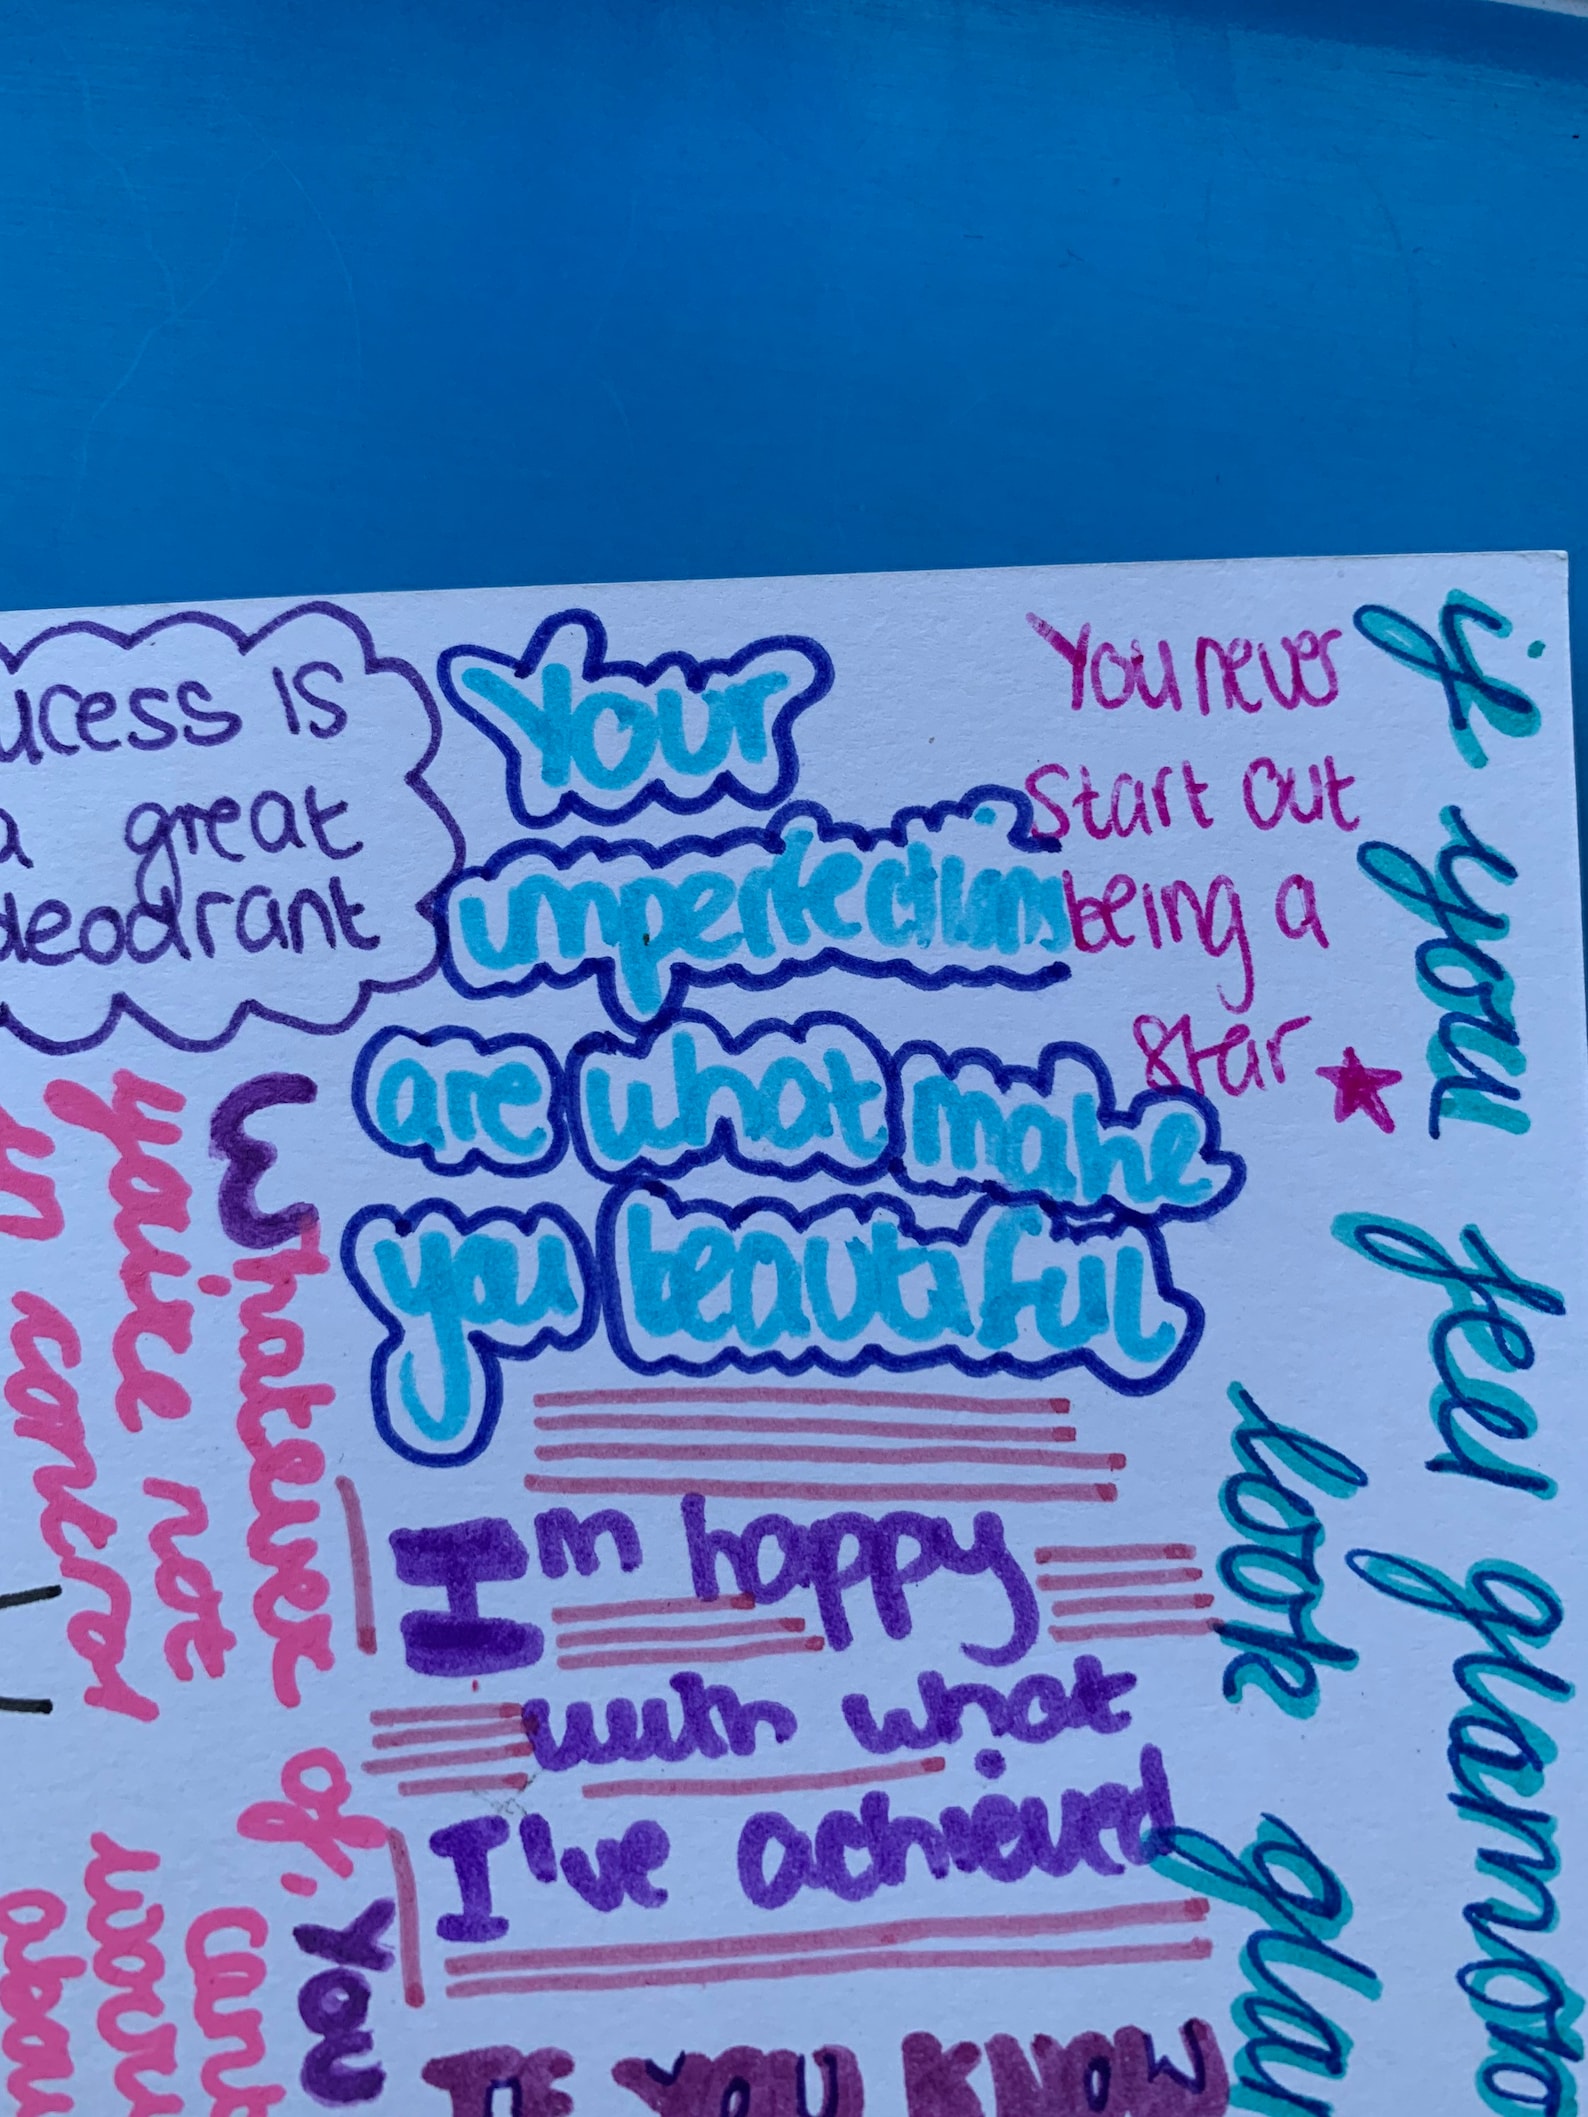 ucess is
a great
deodrant
Your
imperfections
are what make
you beautiful
You never
start out
being a
star
if you feel glamo
look gla
Whatever
you're not
in control
of, You
cant
worry
abou
I'm happy
with what
I've achieved
IF YOU KNOW